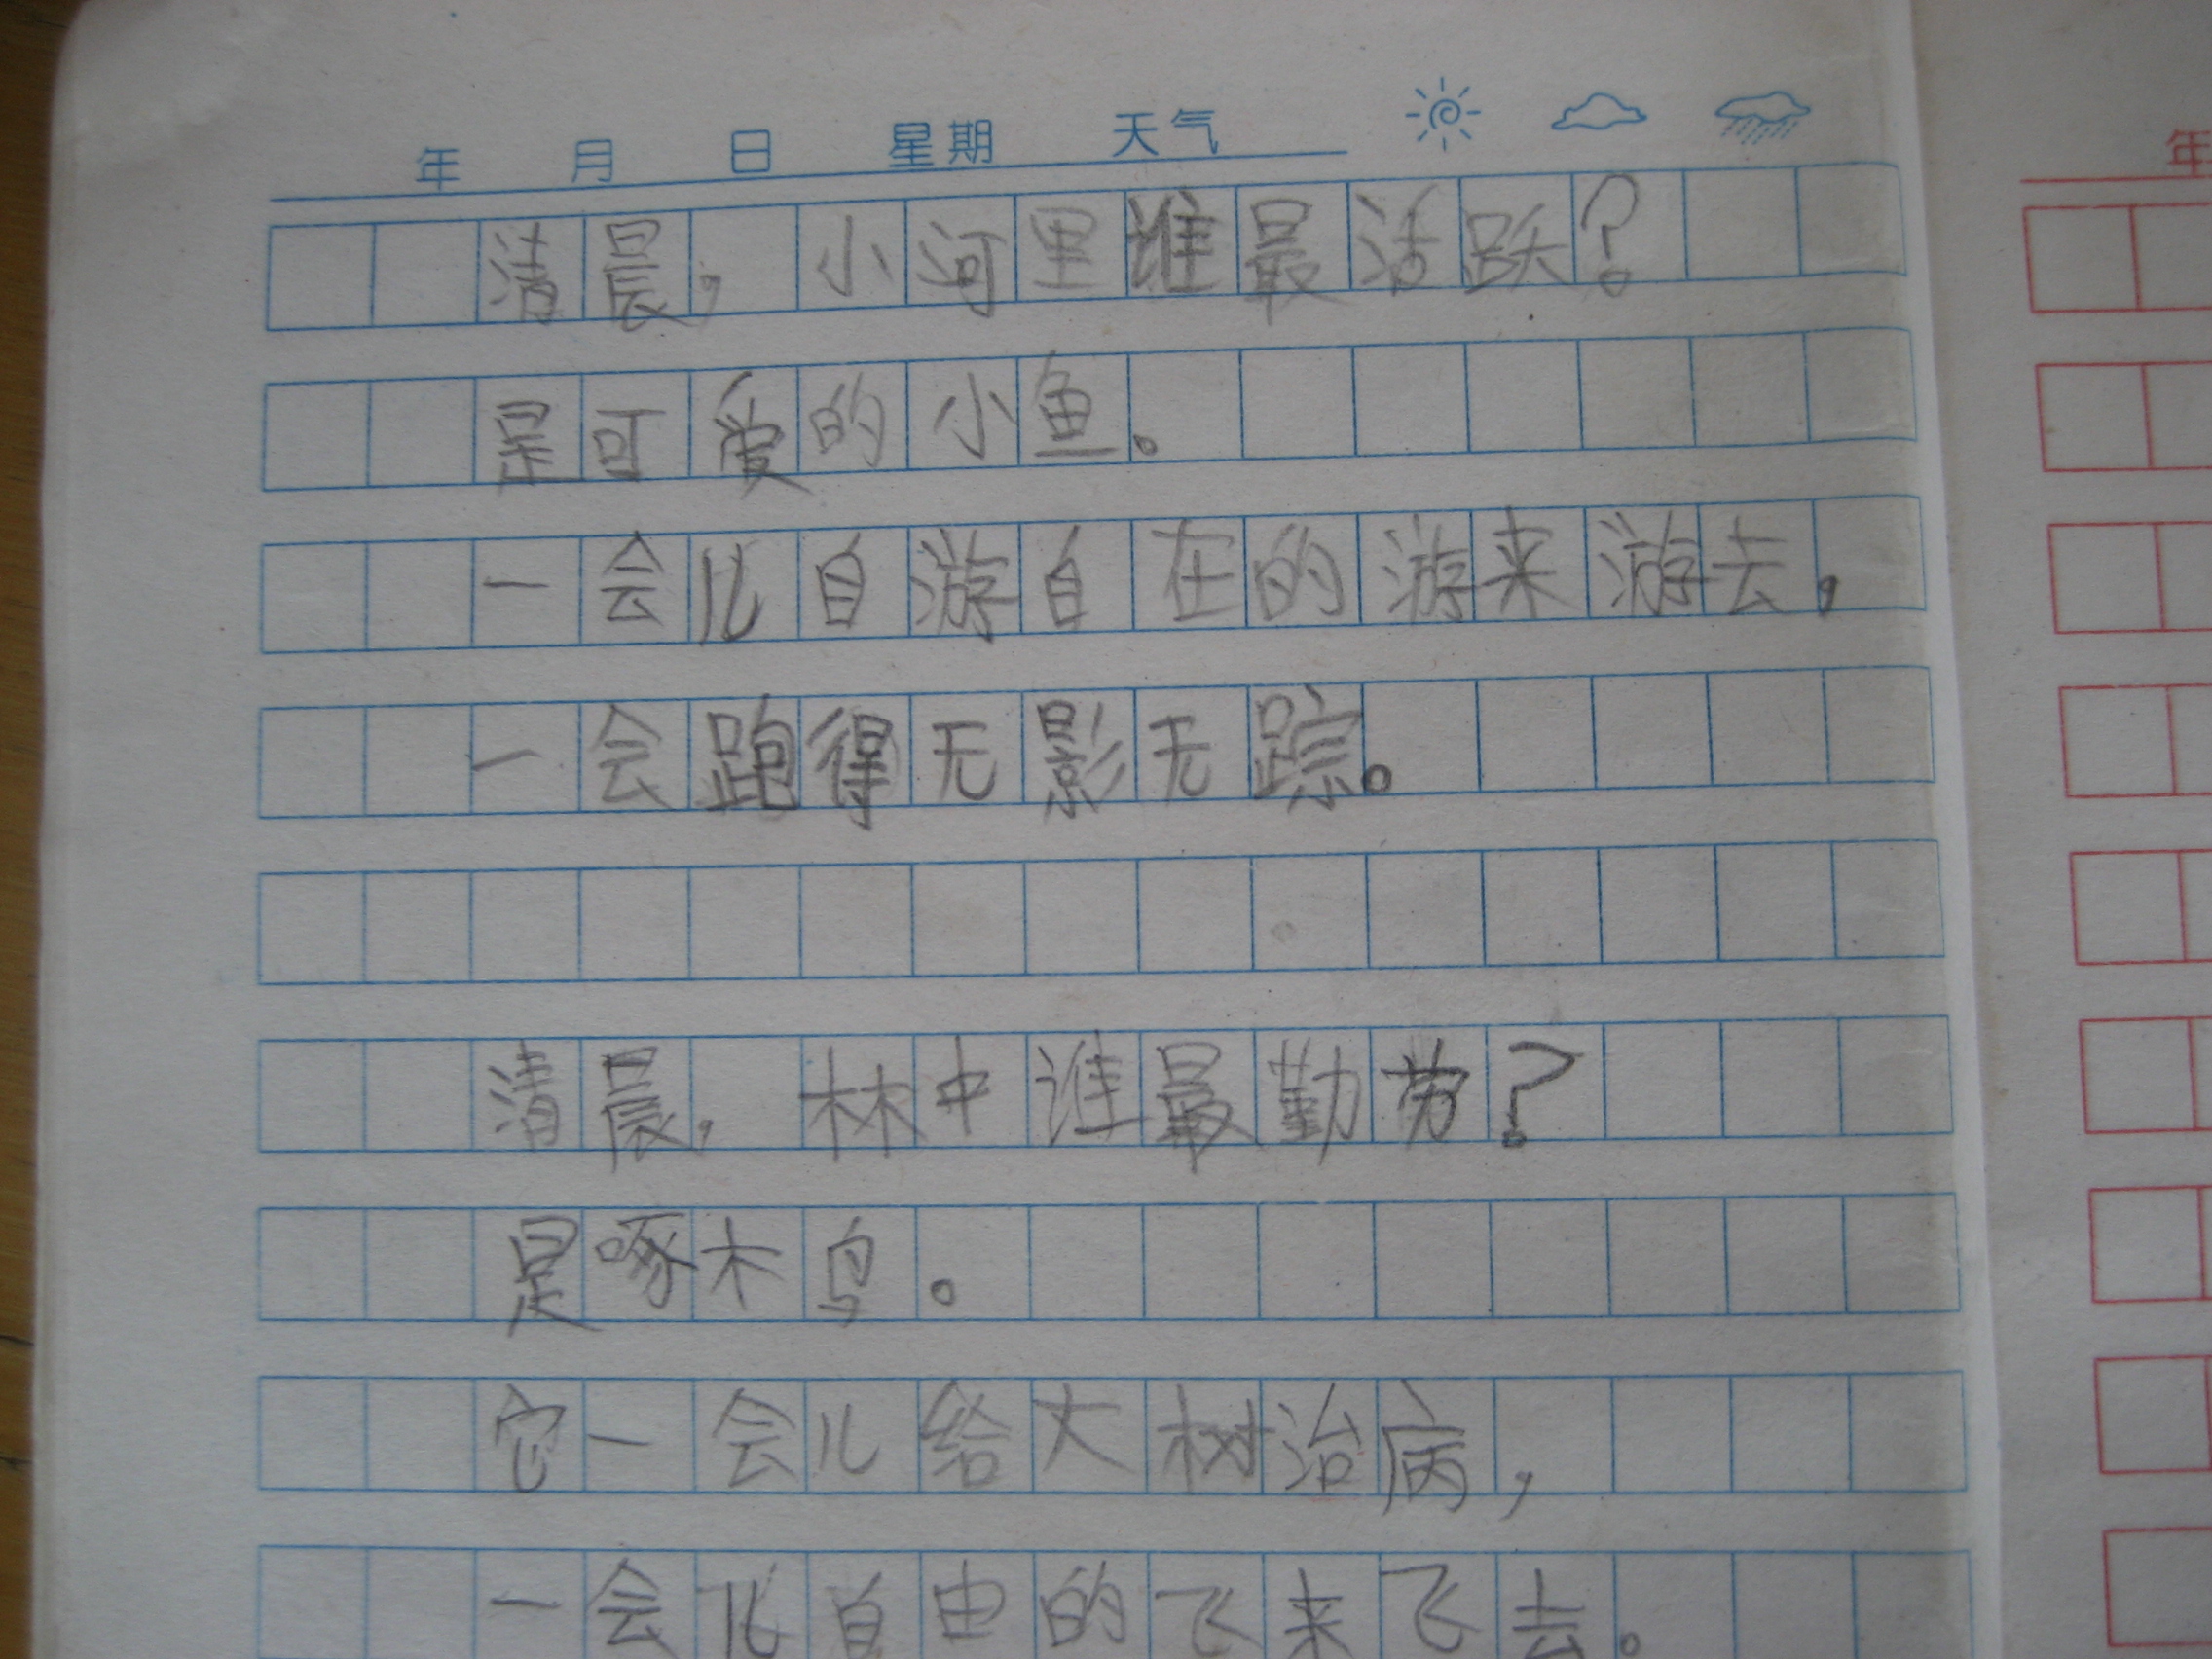 年 月 日 星期 天气
年
清晨，小河里谁最活跃？
是可爱的小鱼。
一会儿自游自在的游来游去，
一会跑得无影无踪。
清晨，林中谁最勤劳？
是啄木鸟。
它一会儿给大树治病，
一会儿自由的飞来飞去。